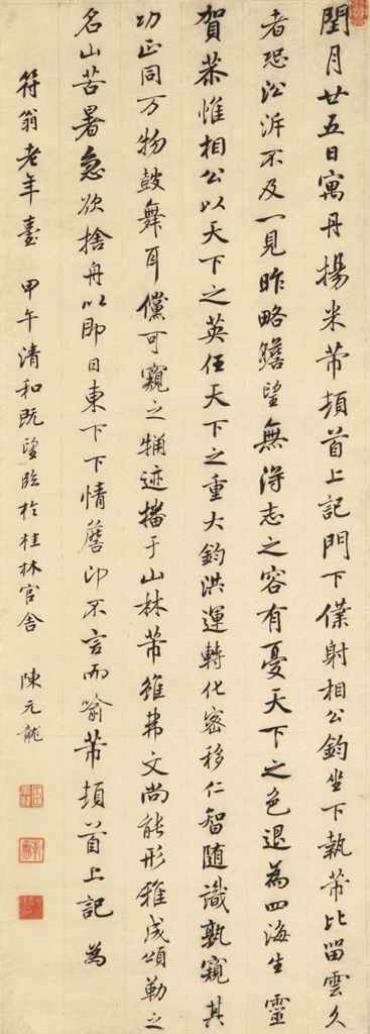 閏月廿五日寓丹揚米芾頓首上記門下僕射相公鈞坐下執芾比留雲久
者恐沿泝不及一見昨略瞻望無淂志之容有憂天下之色退為四海生靈
賀恭惟相公以天下之英任天下之重大鈞洪運轉化密移仁智隨識孰窺其
功正同万物鼓舞耳儻可窺之痡迹播于山林芾雖弗文尚能形雅成頌勒之
名山苦暑急欲捨舟以即日東下下情瞻卬不言而喻芾頓首上記 為
符翁老年臺 甲午清和既望臨於桂林官舍 陳元龍